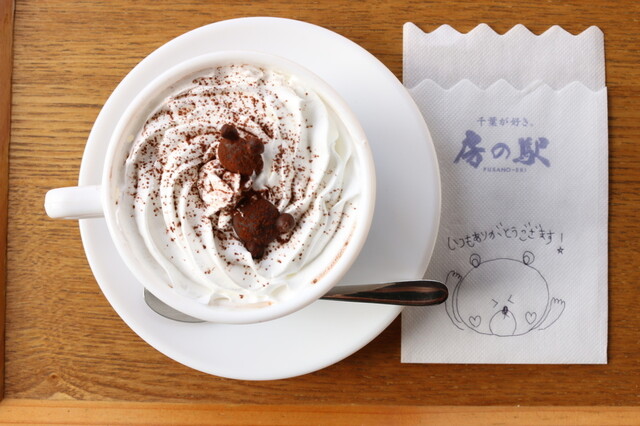 千葉が好き。
房の駅
FUSANO-EKI
いつもありがとうございます!